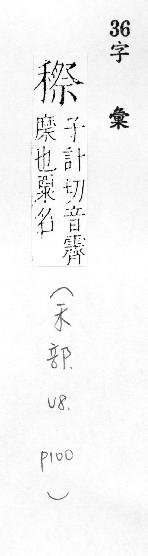 36字彙
穄
子計切音霽
糜也名
(禾部. U8. p100)